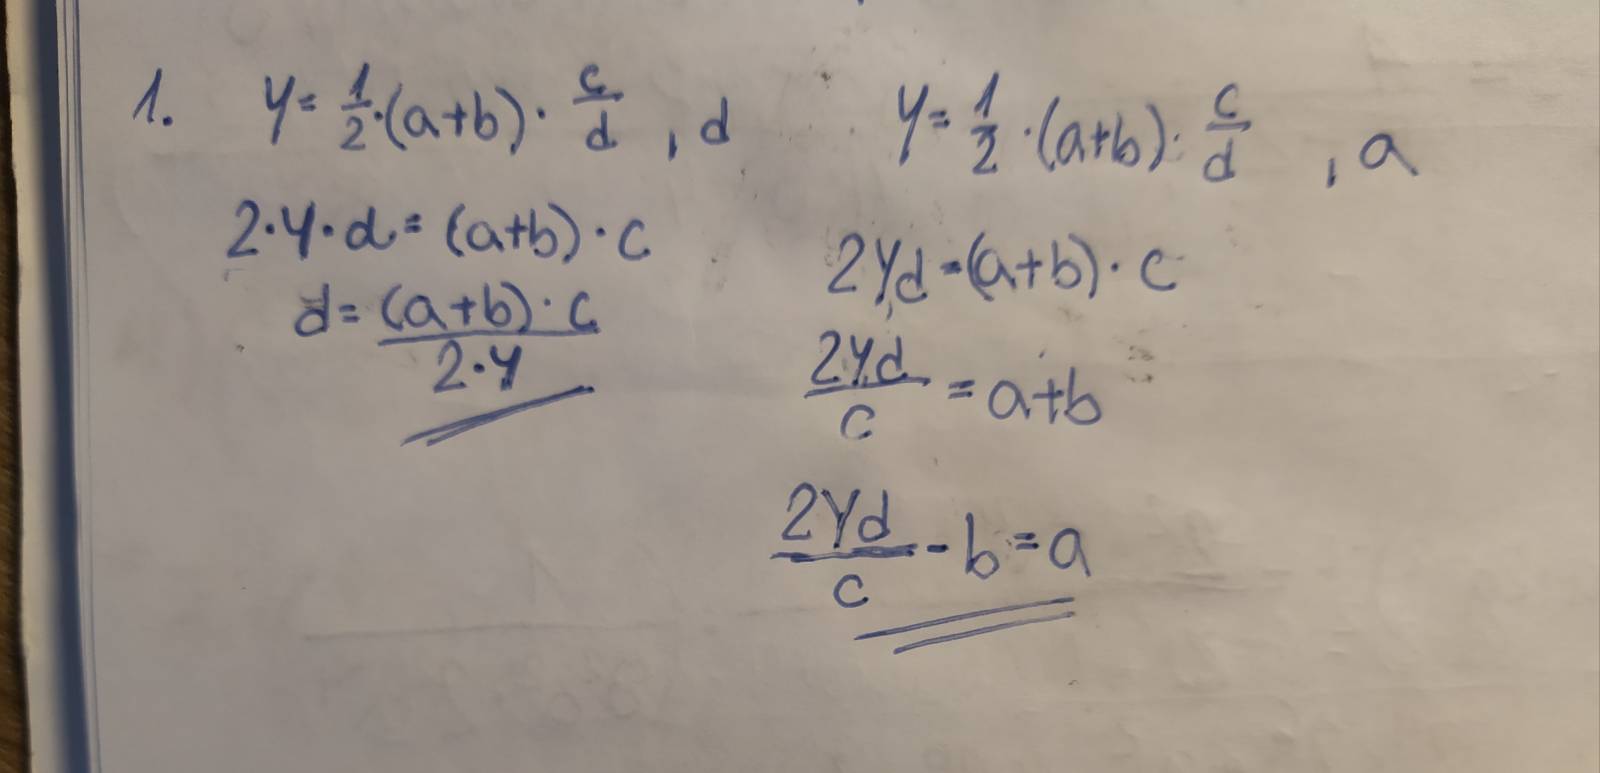 1. y = 1/2 · (a+b) · c/d , d
2·y·d = (a+b)·c
d = (a+b)·c / 2·y
y = 1/2 · (a+b) · c/d , a
2yd = (a+b)·c
2yd/c = a+b
2yd/c - b = a